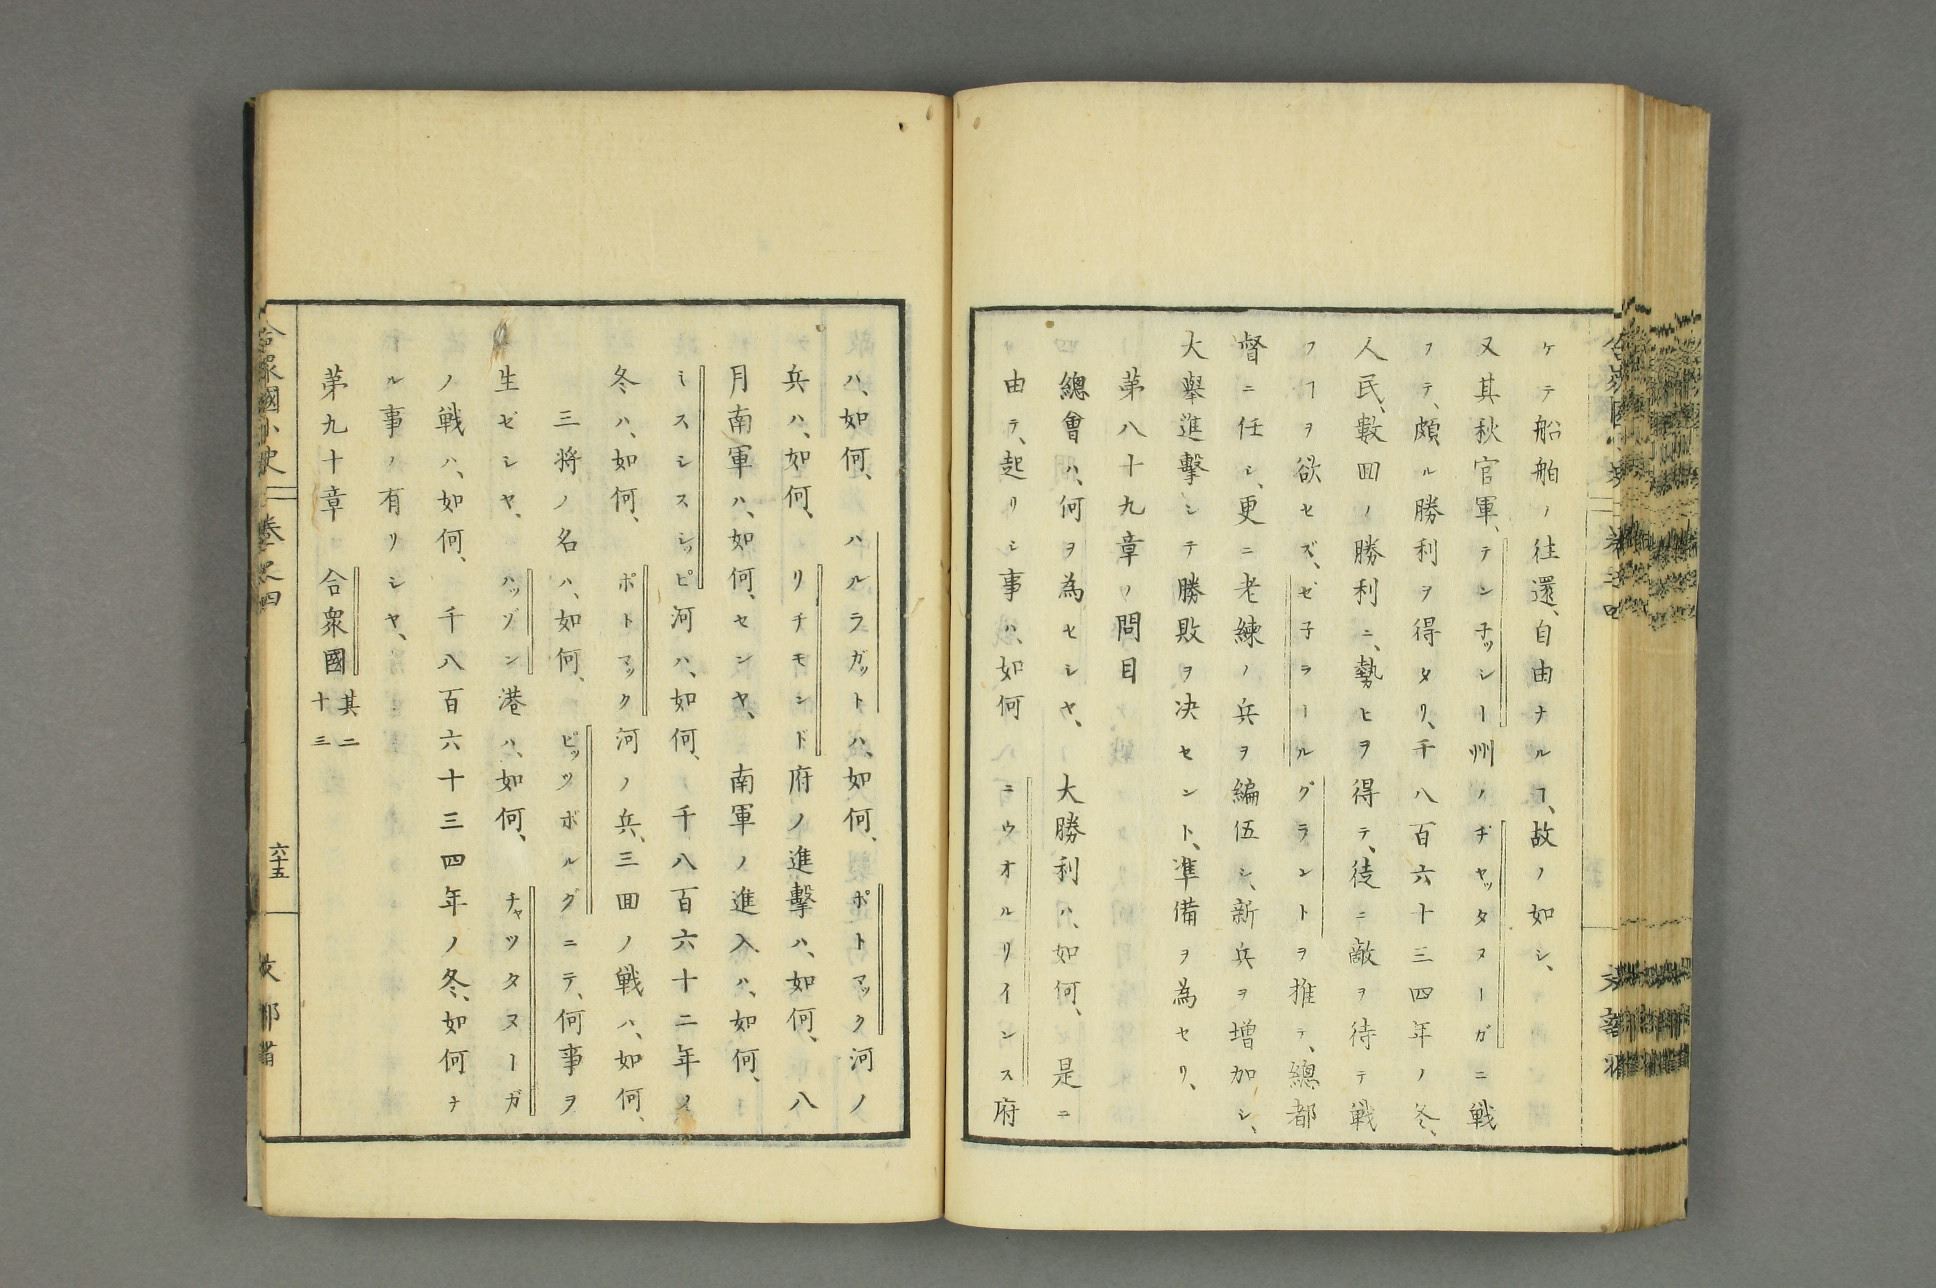 ケテ船舶ノ往還、自由ナルヿ、故ノ如シ、
又其秋官軍、テン子ッシー州ノチャッタヌーガニ戦
フテ、頗ル勝利ヲ得タリ、千八百六十三四年ノ冬、
人民、數囬ノ勝利ニ、勢ヒヲ得テ、徒ニ敵ヲ待テ戦
フヿヲ欲セズ、ゼ子ラールグラントヲ推テ、總都
督ニ任シ、更ニ老練ノ兵ヲ編伍シ、新兵ヲ増加シ、
大擧進擊シテ勝敗ヲ决セント、凖備ヲ為セリ、
第八十九章ノ問目
總會ハ、何ヲ為セシヤ、大勝利ハ、如何、是ニ
由テ、起リシ事ハ、如何ニウオルリインス府
ハ、如何、ハルラガットハ、如何、ポトマック河ノ
兵ハ、如何、リチモンド府ノ進擊ハ、如何、八
月南軍ハ、如何、センヤ、南軍ノ進入ハ、如何、
ミスシスシッピ河ハ、如何、千八百六十二年ノ
冬ハ、如何、ポトマック河ノ兵、三囬ノ戦ハ、如何、
三将ノ名ハ、如何、ピッツボルグニテ、何事ヲ
生ゼシヤ、ハッゾン港ハ、如何、チャツタヌーガ
ノ戦ハ、如何、千八百六十三四年ノ冬、如何ナ
ル事ノ有リシヤ、
第九十章 合衆國 其二十三
合衆國小史 卷之四 六十五 文部省